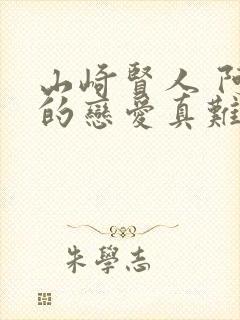 山崎賢人
的戀愛真難
朱學志